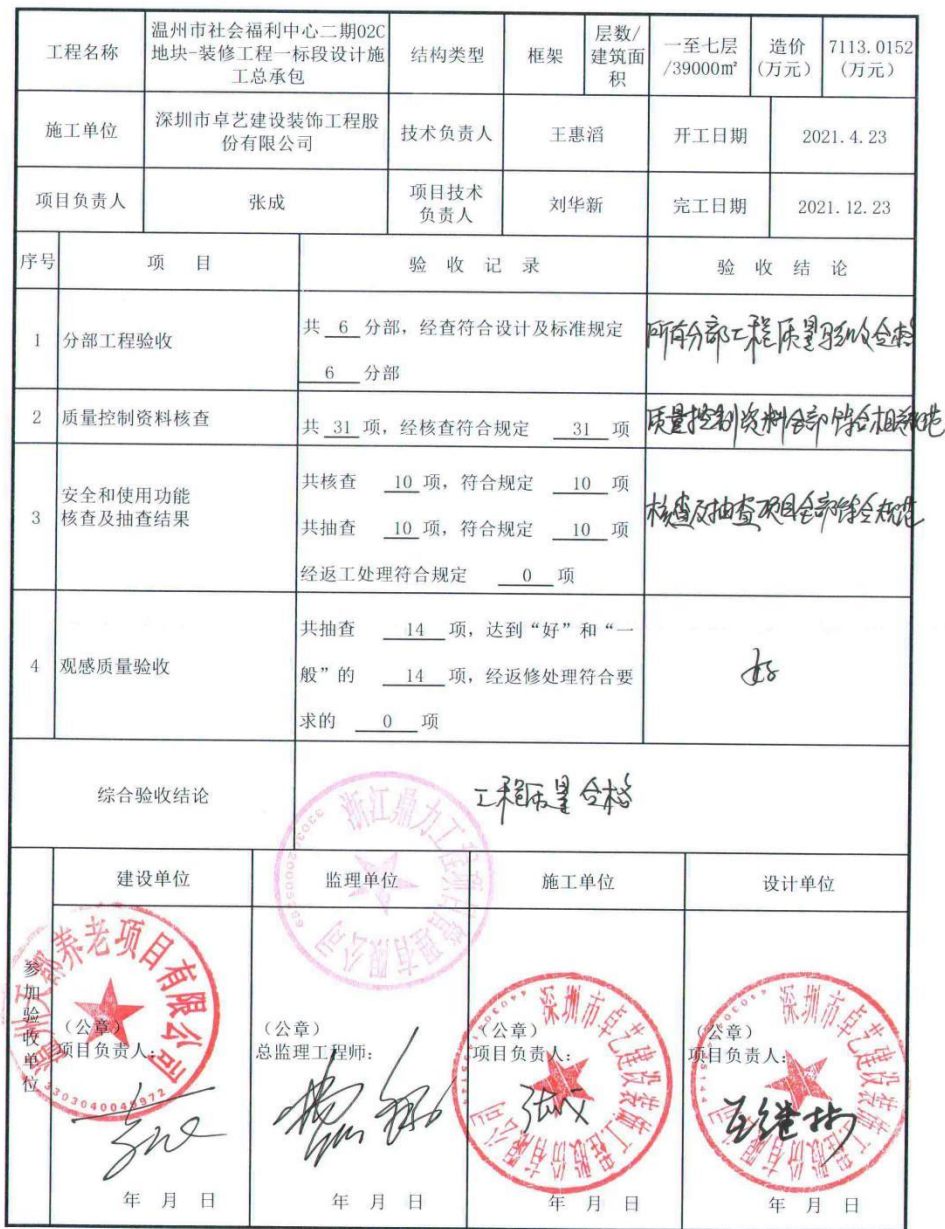 工程名称
温州市社会福利中心二期02C
地块-装修工程一标段设计施
工总承包
结构类型
框架
层数/
建筑面
积
一至七层
/39000㎡
造价
(万元)
7113.0152
(万元)
施工单位
深圳市卓艺建设装饰工程股
份有限公司
技术负责人
王惠滔
开工日期
2021.4.23
项目负责人
张成
项目技术
负责人
刘华新
完工日期
2021.12.23
序号
项 目
验 收 记 录
验 收 结 论
1
分部工程验收
共 6 分部，经查符合设计及标准规定
6 分部
所有分部工程质量验收合格
2
质量控制资料核查
共 31 项，经核查符合规定 31 项
质量控制资料全部符合相关规范
3
安全和使用功能
核查及抽查结果
共核查 10 项，符合规定 10 项
共抽查 10 项，符合规定 10 项
经返工处理符合规定 0 项
核查及抽查项目全部符合规范
4
观感质量验收
共抽查 14 项，达到“好”和“一
般”的 14 项，经返修处理符合要
求的 0 项
好
综合验收结论
工程质量合格
参加验收单位
建设单位
监理单位
施工单位
设计单位
养老项目有限公司
3303040049972
（公章）
项目负责人：
年 月 日
浙江鼎力工程项目管理有限公司
（公章）
总监理工程师：
年 月 日
深圳市卓艺建设装饰工程股份有限公司
（公章）
项目负责人：
张成
年 月 日
深圳市卓艺建设装饰工程股份有限公司
（公章）
项目负责人：
王继坊
年 月 日